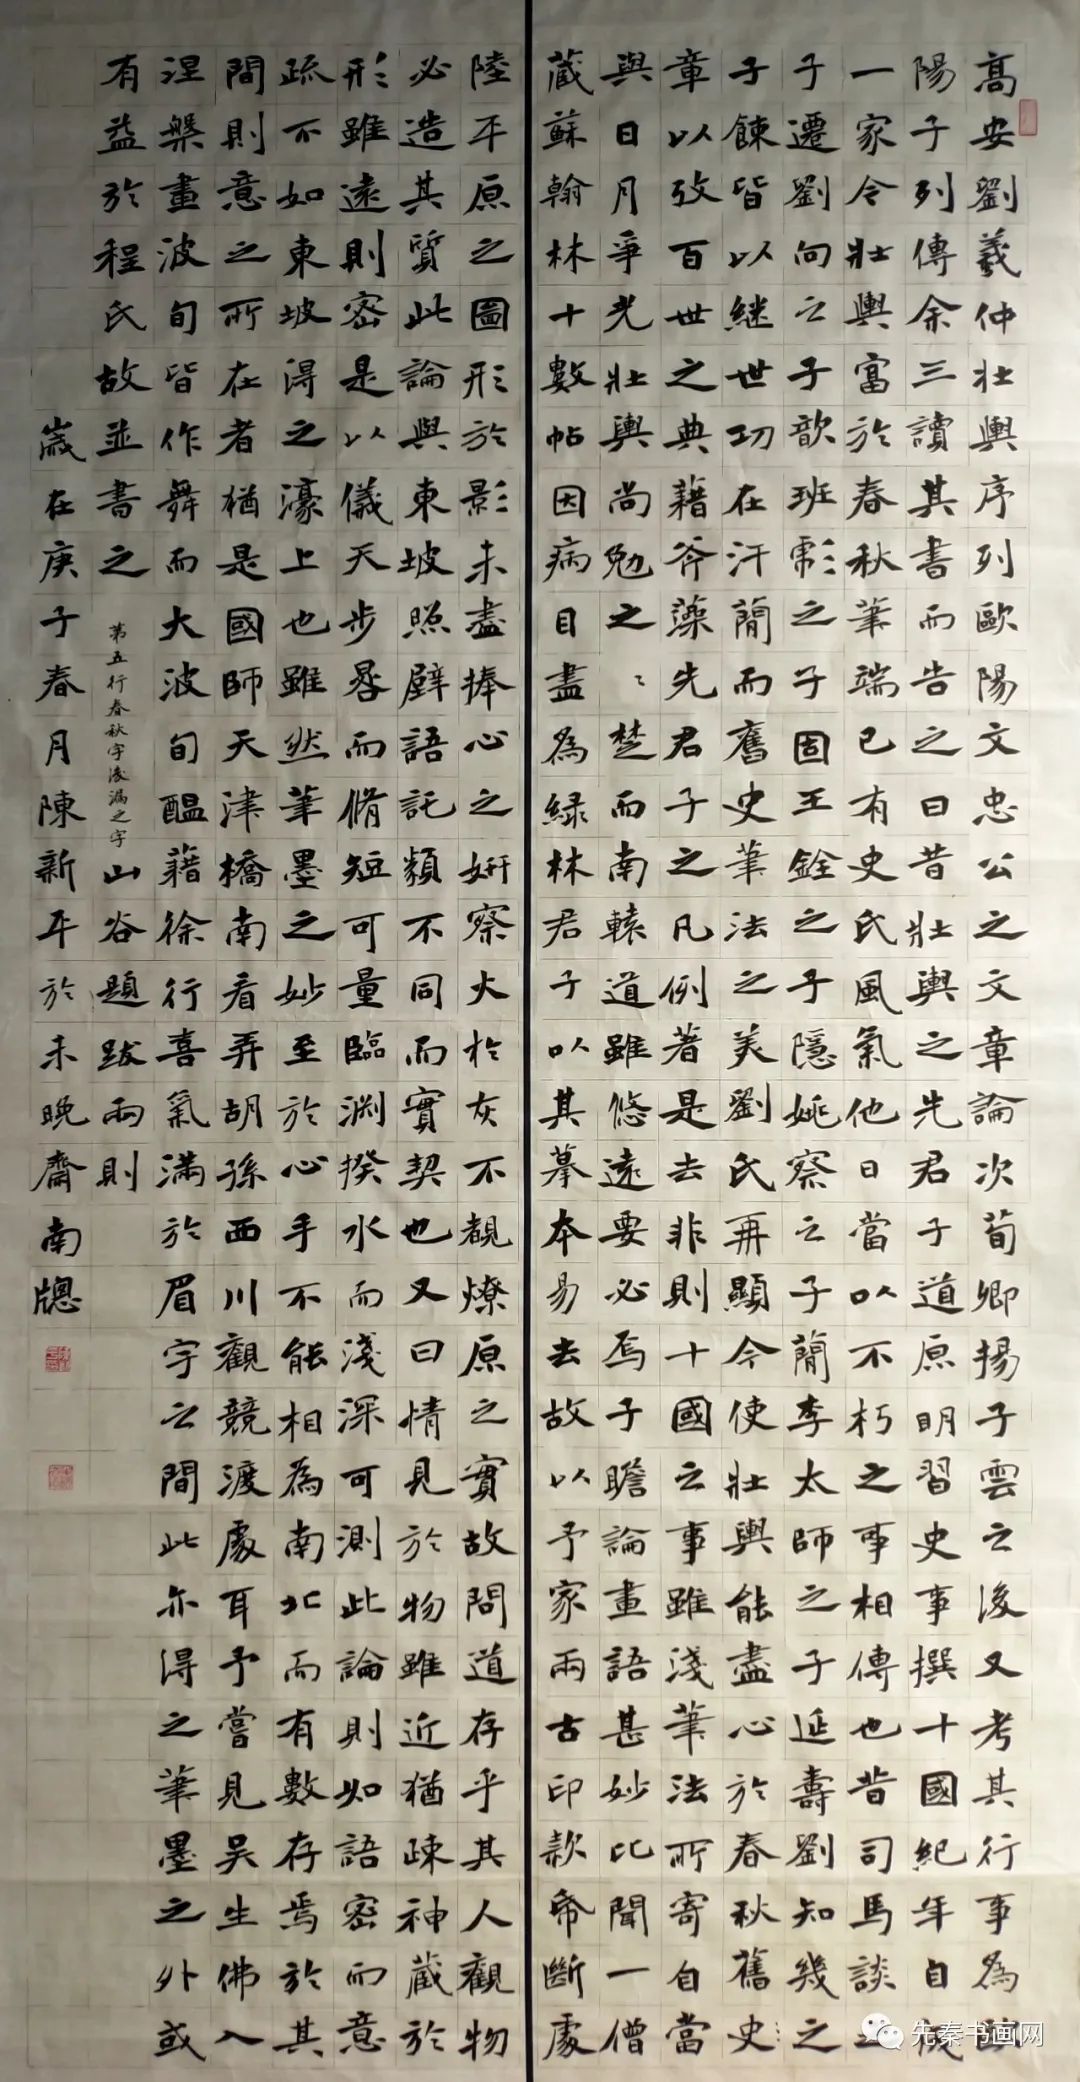 高安劉羲仲壯輿序列歐陽文忠公之文章論次荀卿揚子雲之後又考其行事爲
陽子列傳余三讀其書而告之曰昔壯輿之先君子道原明習史事撰十國紀年自成
一家今壯輿富於春秋筆端已有史氏風氣他日當以不朽之事相傳也昔司馬談之
子遷劉向之子歆班彪之子固王銓之子隱姚察之子簡李太師之子延壽劉知幾之
子餗皆以継世功在汗簡而舊史筆法之美劉氏再顯今使壯輿能盡心於春秋舊史
章以攷百世之典藉斧藻先君子之凡例著是去非則十國之事雖淺筆法所寄自當
與日月爭光壯輿尚勉之〻楚而南轅道雖悠遠要必焉子瞻論畫語甚妙比聞一僧
藏蘇翰林十數帖因病目盡為緑林君子以其摹本易去故以予家兩古印款帋斷處
陸平原之圖形於影未盡捧心之妍察火於灰不覩燎原之實故問道存乎其人觀物
必造其質此論與東坡照壁語託類不同而實契也又曰情見於物雖近猶疎神藏於
形雖遠則密是以儀天步晷而脩短可量臨淵揆水而淺深可測此論則如語密而意
疏不如東坡得之濠上也雖然筆墨之妙至於心手不能相為南北而有數存焉於其
間則意之所在者猶是國師天津橋南看弄胡孫西川觀競渡處耳予嘗見吳生佛入
涅槃畫波旬皆作舞而大波旬醖藉徐行喜氣滿於眉宇之間此亦得之筆墨之外或
有益於程氏故並書之
第五行春秋字後漏之字
山谷題跋兩則
歲在庚子春月陳新平於未晚齋南牕
先秦书画网